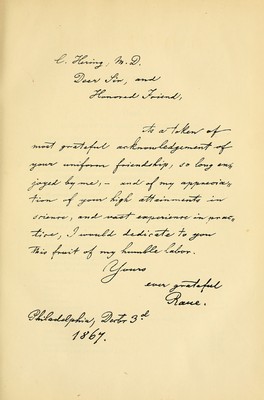 C. Hering, M.D.
Dear Sir, and
Honored Friend,
As a token of
most grateful acknowledgement of
your uniform friendship, so long en,
joyed by me, – and of my apprecia,
tion of your high attainments in
science, and vast experience in prac,
tice, I would dedicate to you
this fruit of my humble labor.
Yours
ever grateful
Raue.
Philadelphia, Decbr 3d
1867.